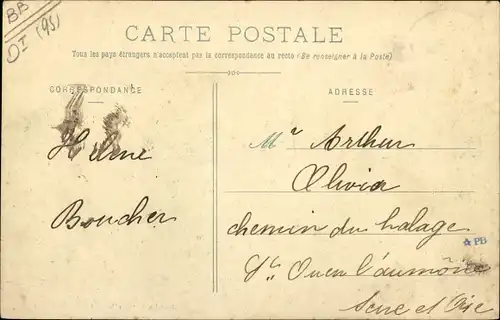 BB
OI (95)
CARTE POSTALE
Tous les pays étrangers n'acceptent pas la correspondance au recto (Se renseigner à la Poste)
CORRESPONDANCE
Boucher
ADRESSE
Mr Arthur
Olivia
chemin du halage
St Ouen l'aumône
Seine et Oise
PB